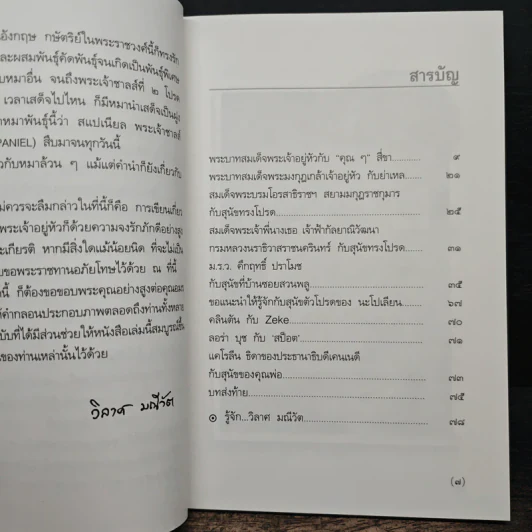 อังกฤษ กษัตริย์ในพระราชวงศ์นี้ก็ทรงรัก
และผสมพันธุ์คัดพันธุ์จนเกิดเป็นพันธุ์พิเศษ
บหมาอื่น จนถึงพระเจ้าชาลส์ที่ ๒ โปรด
เวลาเสด็จไปไหน ก็มีหมานำเสด็จเป็นฝูง
าหมาพันธุ์นี้ว่า สแปเนียล พระเจ้าชาลส์
PANIEL) สืบมาจนทุกวันนี้
วกับหมาล้วน ๆ แม้แต่คำนำก็ยังเกี่ยวกับ
ม่ควรจะลืมกล่าวในที่นี้ก็คือ การเขียนเกี่ยว
พระเจ้าอยู่หัวก็ด้วยความจงรักภักดีอย่าง
ะเกียรติ หากมีสิ่งใดแม้น้อยนิด ที่จะไม่เป็น
บขอพระราชทานอภัยโทษไว้ด้วย ณ ที่นี้
นี้ ก็ต้องขอขอบพระคุณอย่างสูงต่อคุณ
ห้คำกลอนประกอบภาพตลอดถึงท่านทั้งหลาย
บันที่ได้มีส่วนช่วยให้หนังสือเล่มนี้สมบูรณ์ขึ้น
ของท่านเหล่านั้นไว้ด้วย
วิลาศ มณีวัต
สารบัญ
พระบาทสมเด็จพระเจ้าอยู่หัวกับ "คุณ ๆ" สี่ขา............ ๙
พระบาทสมเด็จพระมงกุฎเกล้าเจ้าอยู่หัว กับย่าเหล........ ๒๑
สมเด็จพระบรมโอรสาธิราชฯ สยามมกุฎราชกุมาร
กับสุนัขทรงโปรด........ ๒๕
สมเด็จพระเจ้าพี่นางเธอ เจ้าฟ้ากัลยาณิวัฒนา
กรมหลวงนราธิวาสราชนครินทร์ กับสุนัขทรงโปรด........ ๓๑
ม.ร.ว. คึกฤทธิ์ ปราโมช
กับสุนัขที่บ้านซอยสวนพลู........ ๓๕
ขอแนะนำให้รู้จักกับสุนัขตัวโปรดของ นะโปเลียน........ ๖๗
คลินตัน กับ Zeke........ ๗๐
ลอร่า บุช กับ 'สป็อต'........ ๗๑
แคโรลีน ธิดาของประธานาธิบดีเคนเนดี
กับสุนัขของคุณพ่อ........ ๗๓
บทส่งท้าย........ ๗๕
๏ รู้จัก...วิลาศ มณีวัต........ ๗๘
(๗)